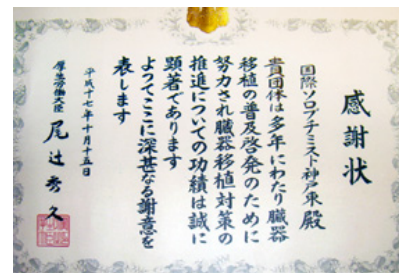 感謝状
国際ソロプチミスト神戸東 殿
貴団体は多年にわたり臓器
移植の普及啓発のために
努力され臓器移植対策の
推進についての功績は誠に
顕著であります
よってここに深甚なる謝意を
表します
平成十七年十月十五日
厚生労働大臣 尾辻秀久